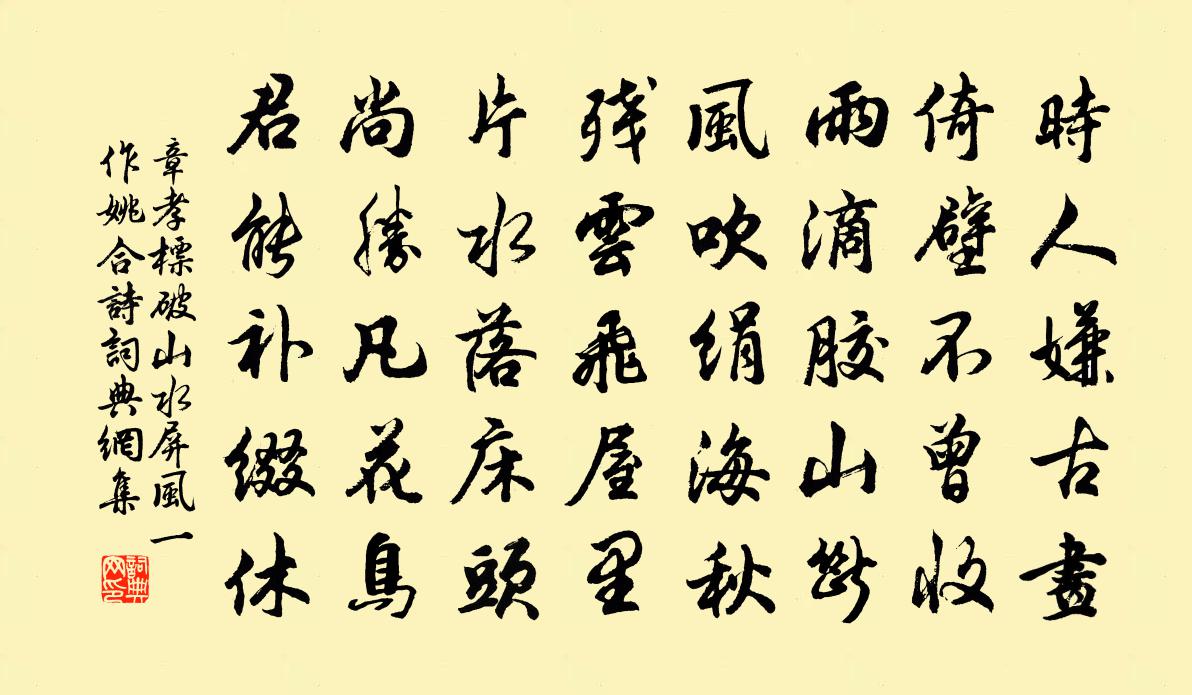 時人嫌古畫
倚壁不曾收
雨滴胶山斷
風吹绢海秋
残雲飛屋里
片水落床頭
尚勝凡花鳥
君能补缀休
章孝標破山水屏風一
作姚合詩詞典網集
詞典
网印